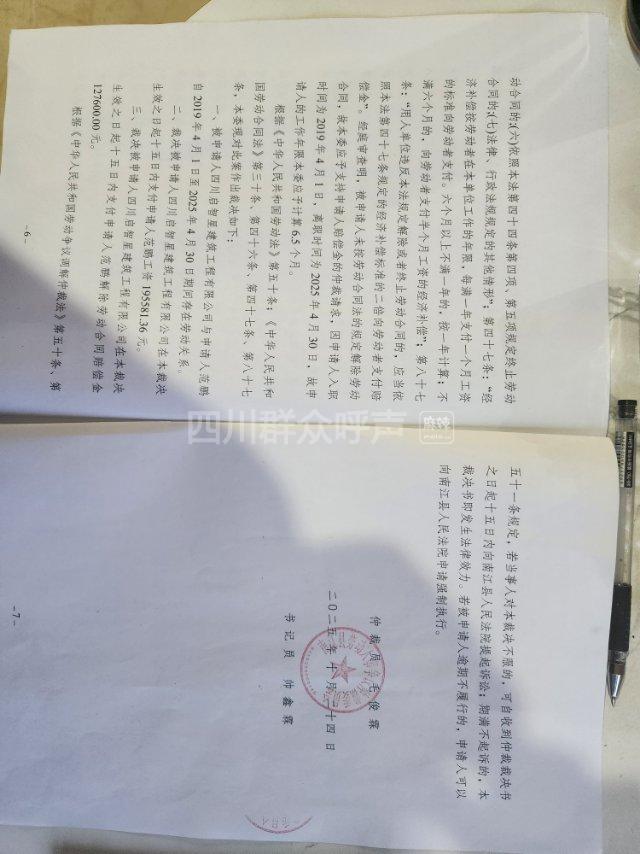 动合同的;(六)依照本法第四十四条第四项、第五项规定终止劳动
合同的;(七)法律、行政法规规定的其他情形"; 第四十七条: "经
济补偿按劳动者在本单位工作的年限, 每满一年支付一个月工资
的标准向劳动者支付。六个月以上不满一年的, 按一年计算; 不
满六个月的, 向劳动者支付半个月工资的经济补偿"; 第八十七
条: "用人单位违反本法规定解除或者终止劳动合同的, 应当依
照本法第四十七条规定的经济补偿标准的二倍向劳动者支付赔
偿金"。经庭审查明, 被申请人未按劳动合同法的规定解除劳动
合同, 故本委应予支持申请人赔偿金的仲裁请求, 因申请人入职
时间为 2019 年 4 月 1 日, 离职时间为 2025 年 4 月 30 日, 故申
请人的工作年限本委应予计算 6.5 个月。
根据《中华人民共和国劳动法》第五十条;《中华人民共和
国劳动合同法》第三十条、第四十六条、第四十七条、第八十七
条, 本委现对此案作出裁决如下:
一、被申请人四川启智星建筑工程有限公司与申请人范鹏
自 2019 年 4 月 1 日至 2025 年 4 月 30 日期间存在劳动关系。
二、裁决被申请人四川启智星建筑工程有限公司在本裁决
生效之日起十五日内支付申请人范鹏工资 195581.36 元。
三、裁决被申请人四川启智星建筑工程有限公司在本裁决
生效之日起十五日内支付申请人范鹏解除劳动合同赔偿金
127600.00 元。
根据《中华人民共和国劳动争议调解仲裁法》第五十条、第
- 6 -
五十一条规定, 若当事人对本裁决不服的, 可自收到仲裁裁决书
之日起十五日内向南江县人民法院提起诉讼; 期满不起诉的, 本
裁决书即发生法律效力。若被申请人逾期不履行的, 申请人可以
向南江县人民法院申请强制执行。
仲裁员 毛俊霖
二〇二五年十月二十四日
书记员 帅鑫霖
- 7 -
四川群众呼声
麻辣